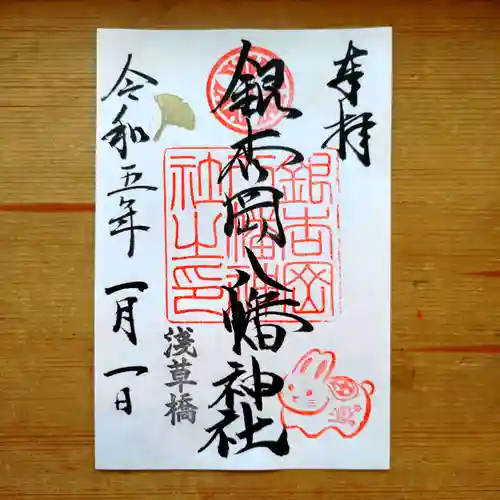 奉拝
銀杏岡八幡神社
銀杏岡
八幡神
社之印
浅草橋
令和五年一月一日